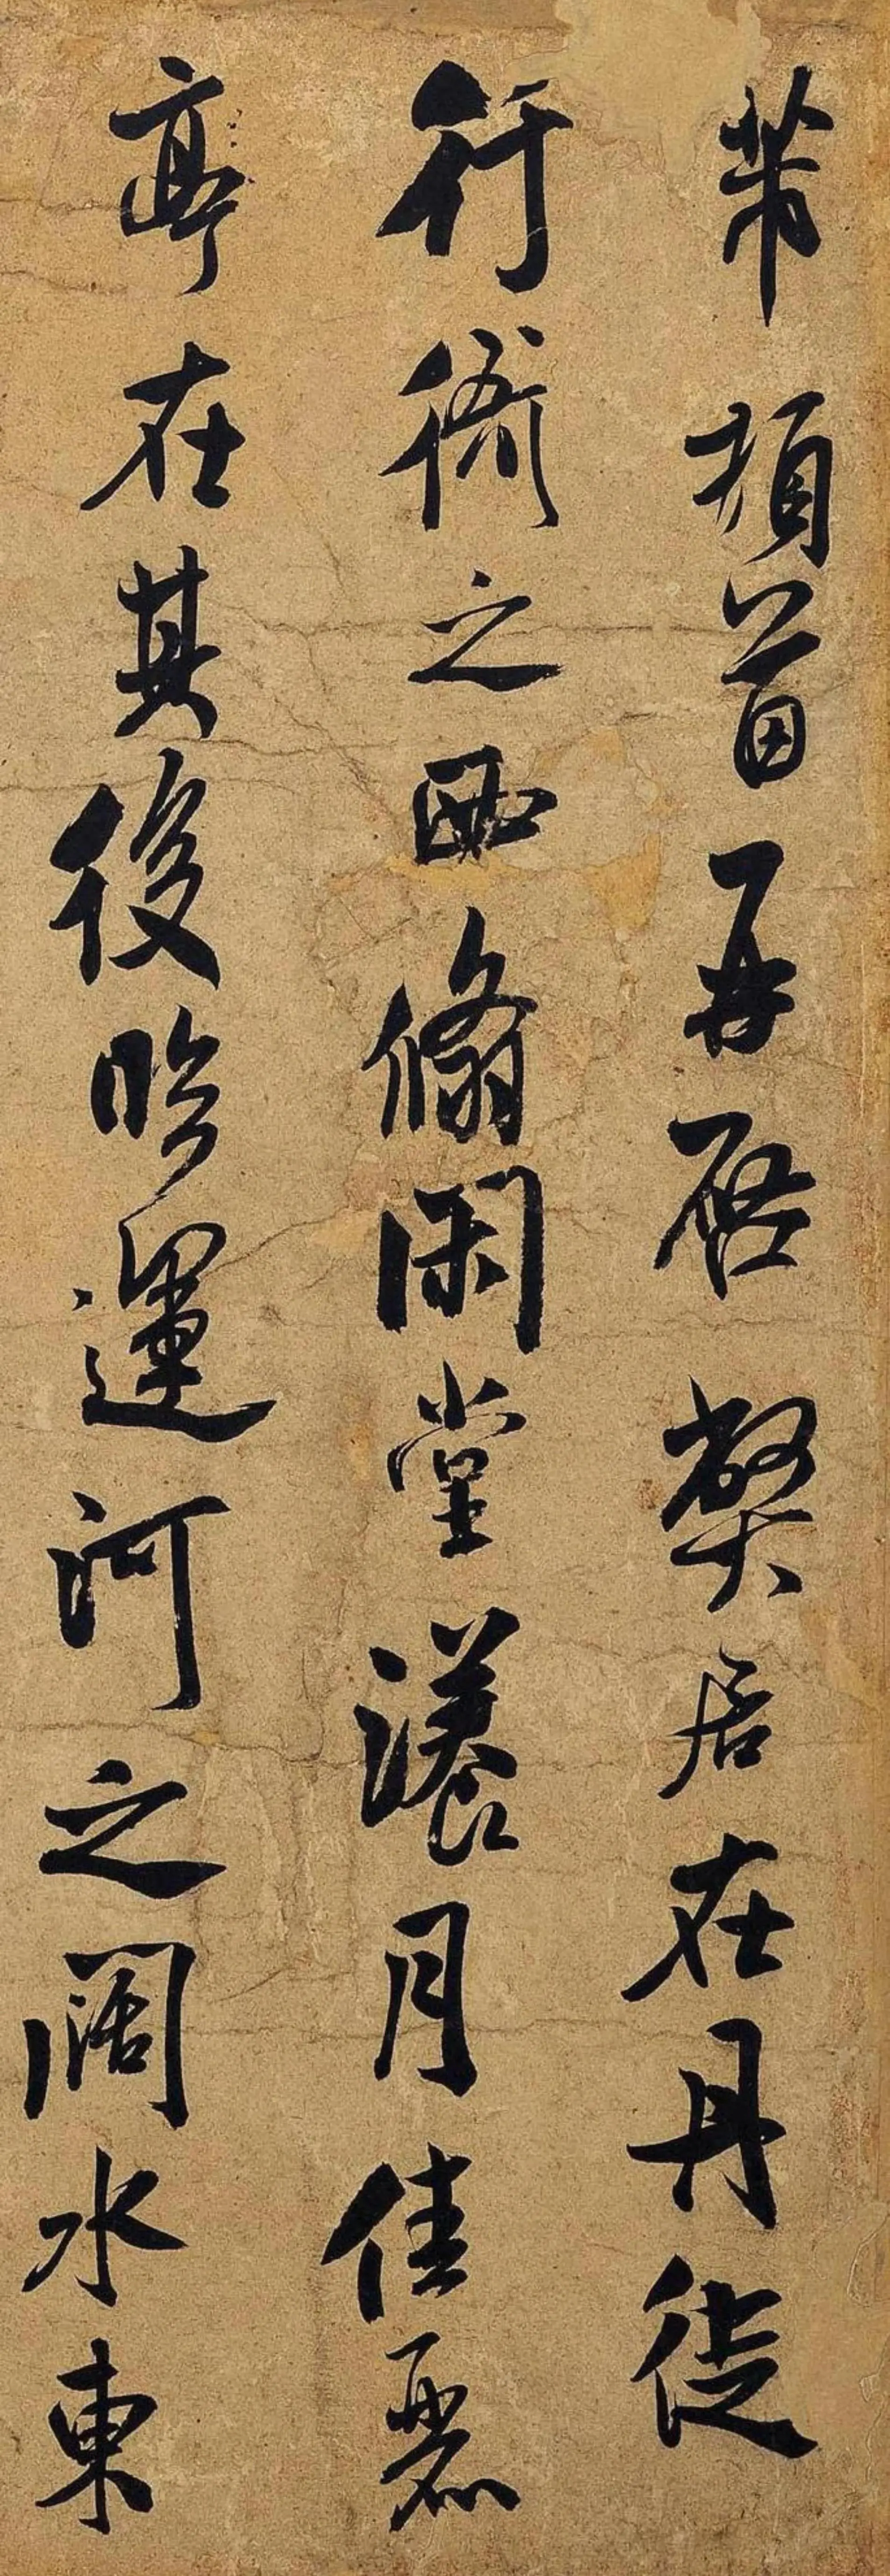 芾頓首再啓弊居在丹徒
行衙之西翛閑堂瀁月佳麗
亭在其後臨運河之闊水東